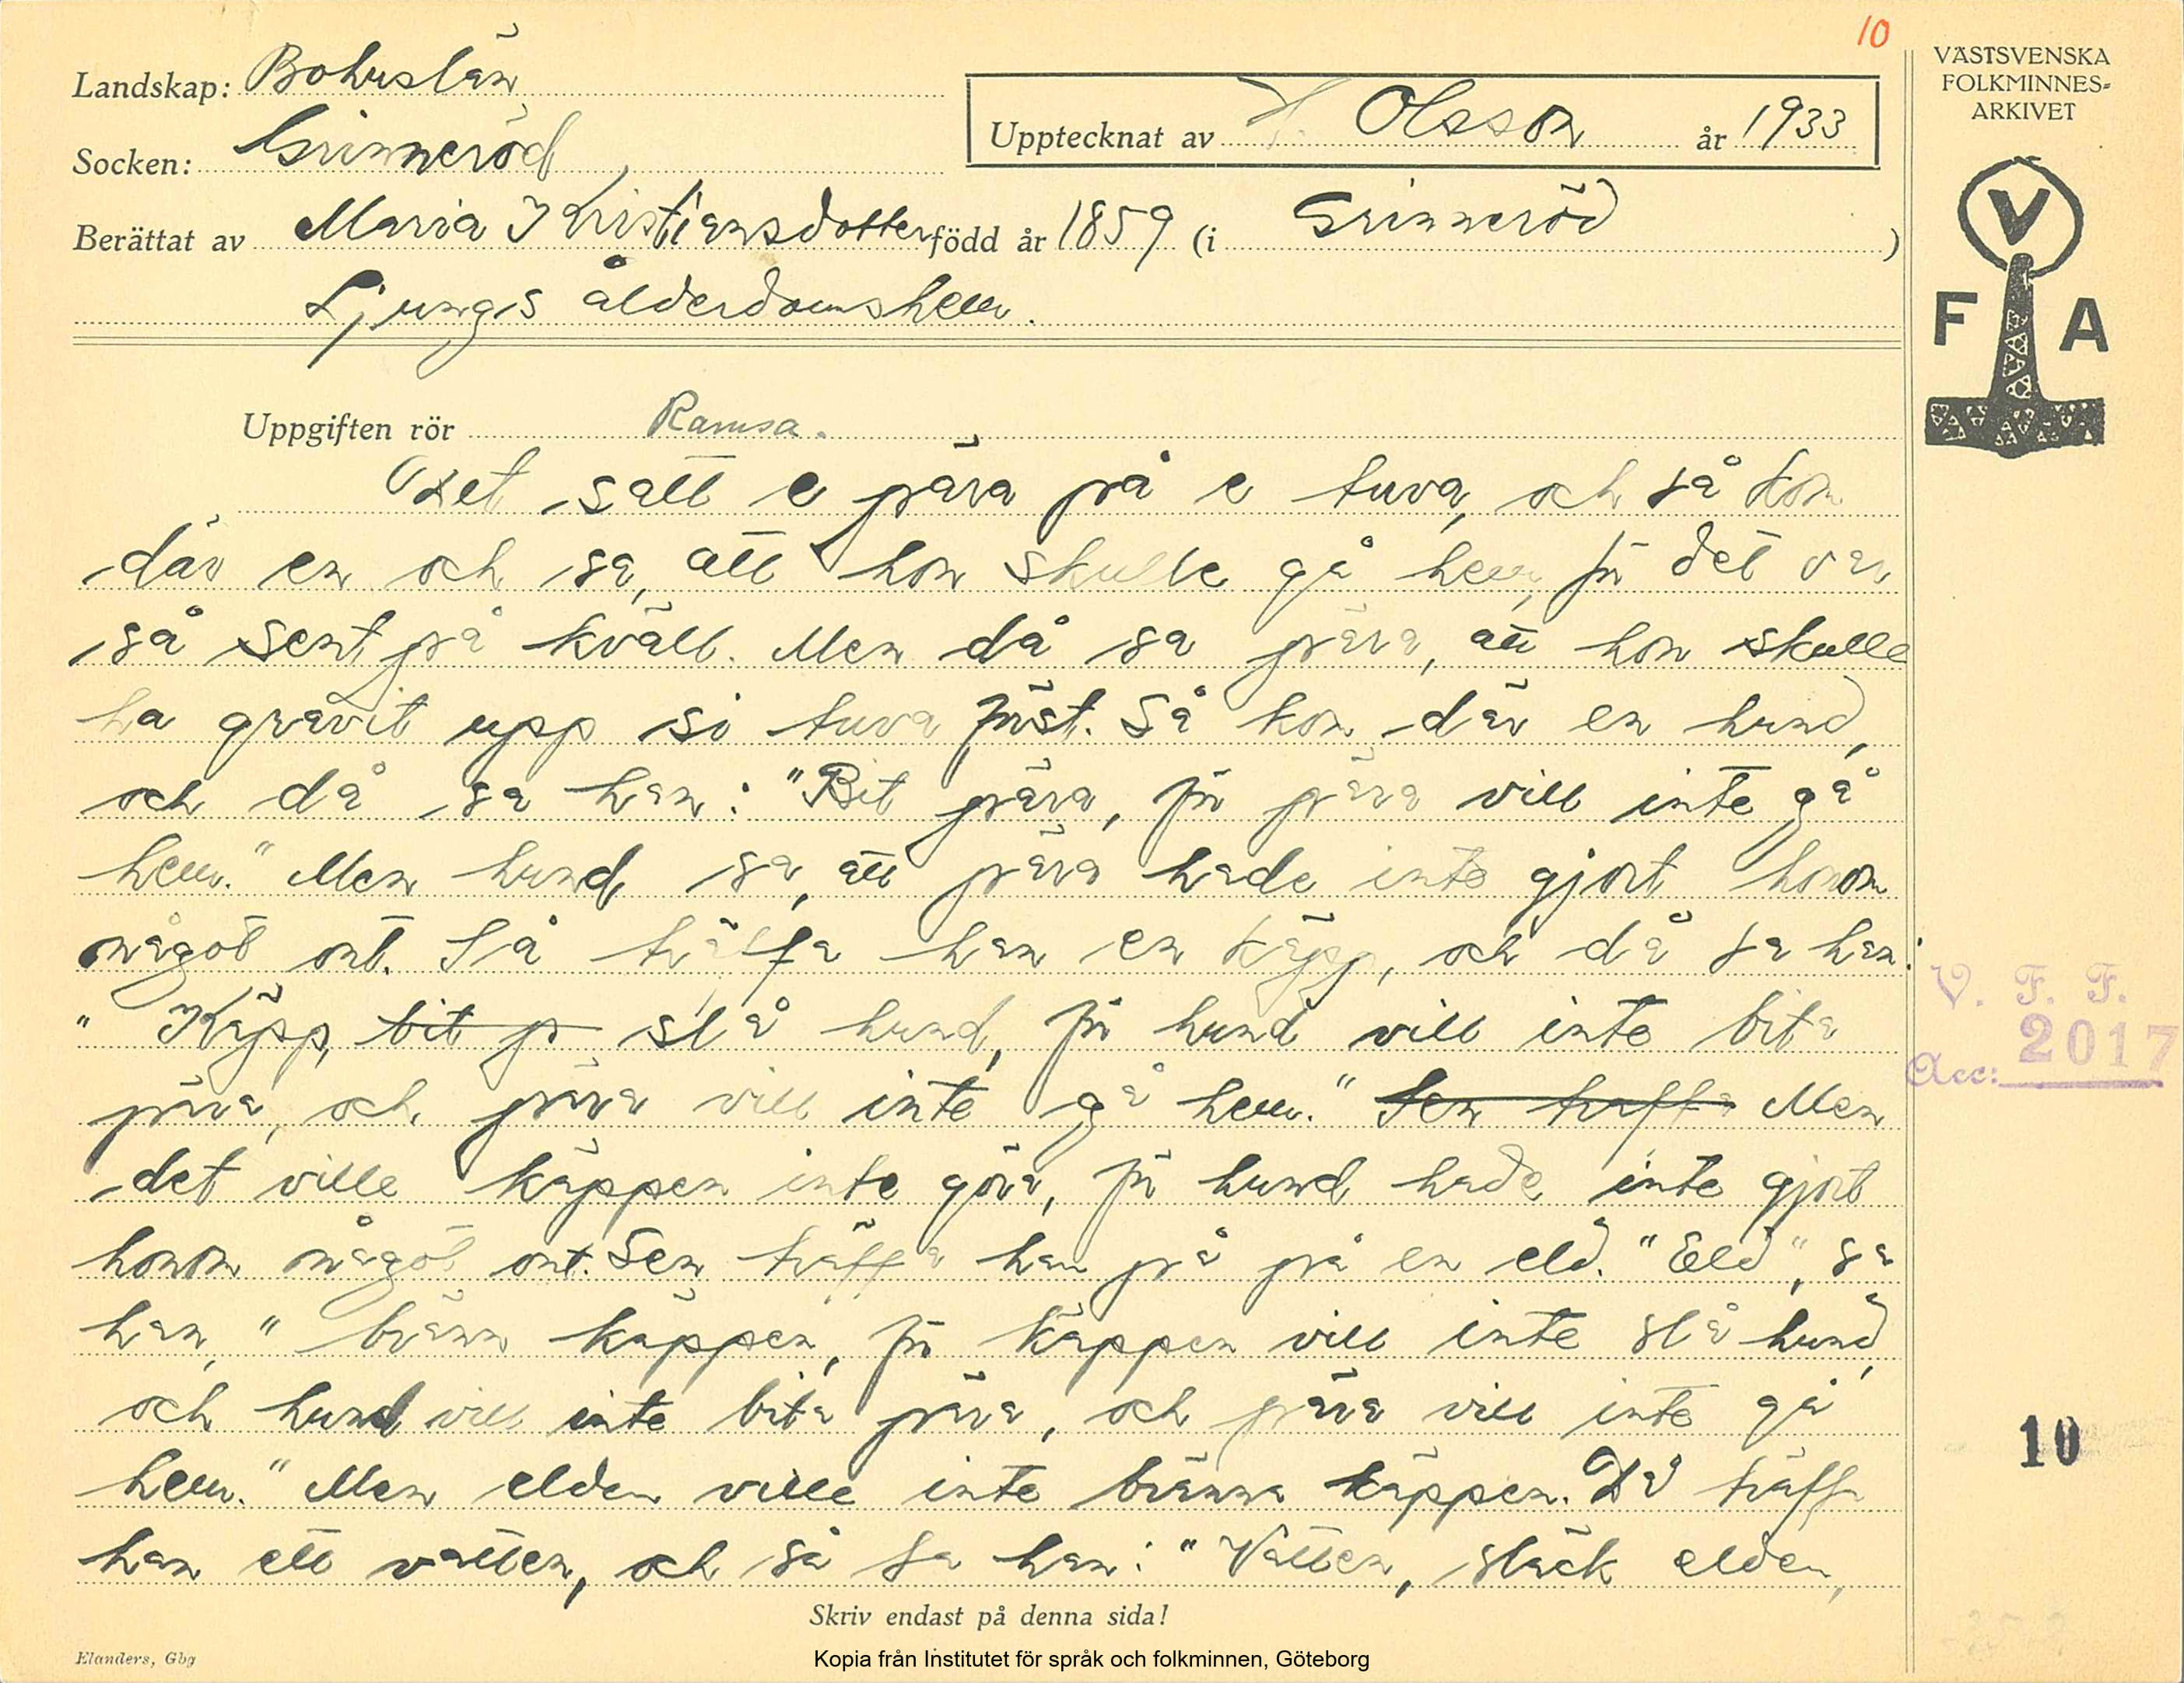 10
Landskap: Bohuslän
Socken: Grinneröd
Upptecknat av Olsson år 1933
Berättat av Maria Kristiansdotter född år 1859 (i Grinneröd)
Ljungs ålderdomshem.
VÄSTSVENSKA
FOLKMINNES-
ARKIVET
V
F A
Uppgiften rör Ramsa.
Det satt e pära på e tuva, och så kom
där en och sa, att hon skulle gå hem, för det var
så sent på kväll. Men då sa pära, att hon skulle
ha grävit upp si tuva först. Så kom där en hund,
och då sa han: "Bit pära, för pära vill inte gå
hem." Men hund sa, att pära hade inte gjort honom
något ont. Så träffa han en käpp, och då sa han:
"Käpp, bit p slå hund, för hund vill inte bita
pära, och pära vill inte gå hem." Sen träffa Men
det ville käppen inte göra, för hund hade inte gjort
honom något ont. Sen träffa han på på en eld. "Eld", sa
han, "bränn käppen, för käppen vill inte slå hund,
och hund vill inte bita pära, och pära vill inte gå
hem." Men elden ville inte bränna käppen. Då träffa
han ett vatten, och så sa han: "Vatten, släck elden,
V. F. F.
Acc: 2017
10
Skriv endast på denna sida!
Elanders, Gbg
Kopia från Institutet för språk och folkminnen, Göteborg